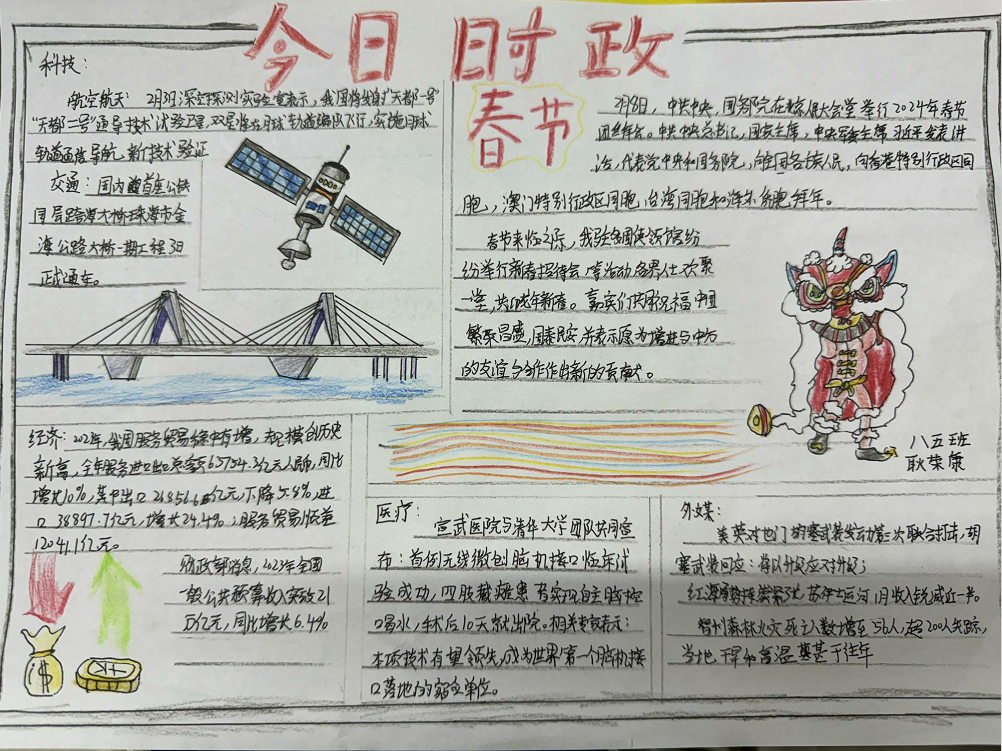 今日时政
科技：
航空航天：2月3日深空探测实验室表示，我国将发射"天都一号"
"天都二号"通导技术试验卫星，双星将在月球轨道编队飞行，实施月球
轨道通信导航新技术验证
交通：国内首座公铁
同层跨海大桥珠海市金
海公路大桥一期工程3日
正式通车。
春节
2月8日，中共中央，国务院在人民大会堂举行2024年春节
团拜会。中共中央总书记，国家主席，中央军委主席习近平发表讲
话，代表党中央和国务院，向全国各族人民，向香港特别行政区同
胞，澳门特别行政区同胞，台湾同胞和海外侨胞拜年。
春节来临之际，我驻各国使领馆纷
纷举行新春招待会，等活动，各界人士欢聚
一堂，共迎龙年新春。嘉宾们共同祝福中国
繁荣昌盛，国泰民安，并表示愿为增进与中方
的友谊与合作作出新的贡献。
八五班
耿荣康
经济：2023年，我国服务贸易稳中有增，规模创历史
新高，全年服务进出口总额65754.3亿元人民币，同比
增长10%，其中出口26856.6亿元，下降5.8%，进
口38897.7亿元，增长24.4%；服务贸易逆差
12041.1亿元。
财政部消息，2023年全国
一般公共预算收入突破21
万亿元，同比增长6.4%
医疗：
宣武医院与清华大学团队共同宣
布：首例无线微创脑机接口临床试
验成功，四肢截瘫患者实现自主脑控
喝水，手术后10天就出院。相关专家表示：
本项技术有望领先，成为世界第一个脑机接
口落地的独立单位。
外媒：
美英对也门胡塞武装发动第三次联合打击，胡
塞武装回应：将以升级应对升级；
红海局势持续紧张，苏伊士运河1月收入锐减近一半。
智利森林火灾死亡人数增至56人，超200人失踪，
当地干旱和高温甚于往年